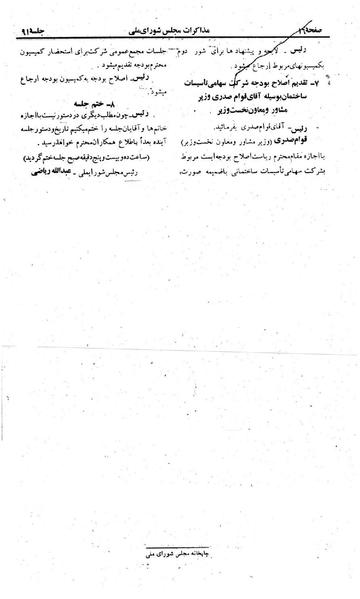 صفحه ۱۶
مذاکرات مجلس شورای ملی
جلسه ۹۱
رئیس - لایحه و پیشنهادها برای شور دوم
بکمیسیونهای مربوط ارجاع میشود.
۷- تقدیم اصلاح بودجه شرکت سهامی تأسیسات
ساختمان بوسیله آقای قوام صدری وزیر
مشاور ومعاون نخست وزیر
رئیس - آقای قوام صدری بفرمائید.
قوام صدری (وزیر مشاور ومعاون نخست وزیر)
با اجازه مقام محترم ریاست اصلاح بودجه ایست مربوط
بشرکت سهامی تأسیسات ساختمانی با ضمیمه صورت
جلسات مجمع عمومی شرکت برای استحضار کمیسیون
محترم بودجه تقدیم میشود.
رئیس - اصلاح بودجه به کمیسیون بودجه ارجاع
میشود.
۸- ختم جلسه
رئیس - چون مطلب دیگری در دستور نیست با اجازه
خانمها و آقایان جلسه را ختم میکنیم تاریخ و دستور جلسه
آینده بعداً باطلاع همکاران محترم خواهد رسید.
(ساعت ده و بیست و پنج دقیقه صبح جلسه ختم گردید)
رئیس مجلس شورایملی - عبدالله ریاضی
چاپخانه مجلس شورای ملی